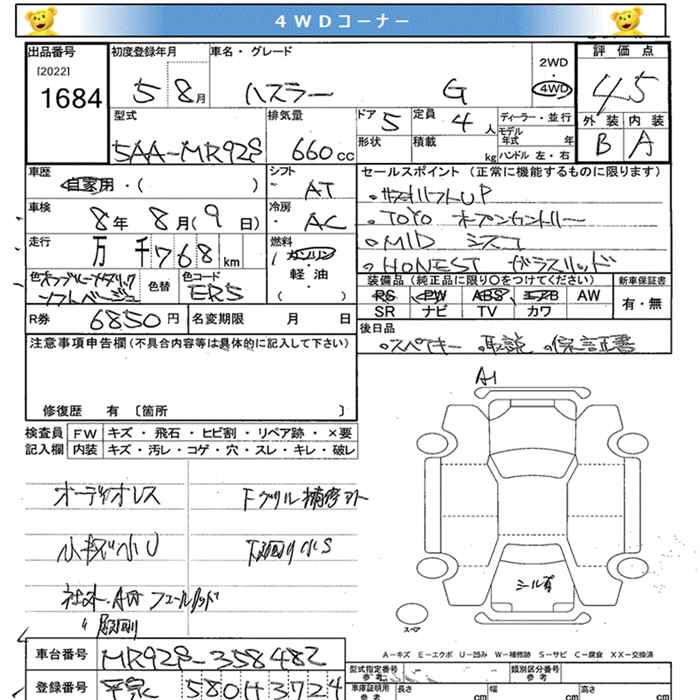 4WDコーナー
出品番号 初度登録年月 車名・グレード 2WD 4WD 評価点
[2022]
1684 5 8月 ハスラー G 4.5
型式 排気量 ドア 5 定員 4人 ディーラー・並行 外装 内装
モデル年式 年
5AA-MR92S 660cc 形状 積載 kg ハンドル 左・右 B A
車歴 シフト セールスポイント (正常に機能するものに限ります)
自家用・( ) AT
リフトUP
車検 冷房 TOYO オープンカントリー
8年 8月(9日) AC MID
走行 燃料 HONEST
万千768km ガソリン
軽・油
( )
色 色替 色コード 装備品 (純正品に限り○をつけてください) 新車保証書
オフブルーメタリック ソフトベージュ ER5 PS PW ABS エアB AW 有・無
SR ナビ TV カワ
R券 6850円 名変期限 月 日 後日品
スペアキー 取説 保証書
注意事項申告欄(不具合内容等は具体的に記入して下さい)
修復歴 有 〔箇所 〕
検査員 FW キズ・飛石・ヒビ割・リペア跡・×要
記入欄 内装 キズ・汚レ・コゲ・穴・スレ・キレ・破レ
A1
オーディオレス Fグリル補修アト
小キズ小U 下回り小S
社外AW
シル有
スペア
A-キズ E-エクボ U-凹み W-補修跡 S-サビ C-腐食 XX-交換済
車台番号 MR92S-358482 型式指定番号 参考 類別区分番号 参考
登録番号 580 H 3724 車庫証明用 参考 長さ cm 幅 cm 高さ cm